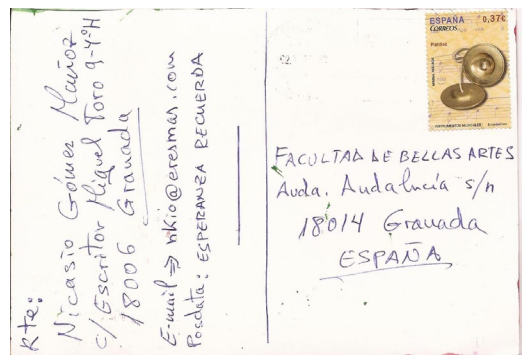 Rte:
Nicasio Gómez Muñoz
c/Escritor Miguel Toro 9-4ºH
18006 Granada
E-mail → nkio@eresmas.com
Posdata: ESPERANZA RECUERDA
ESPAÑA 0,37€
CORREOS
Platillos
INSTRUMENTOS MUSICALES
FACULTAD DE BELLAS ARTES
Avda. Andalucía s/n
18014 Granada
ESPAÑA